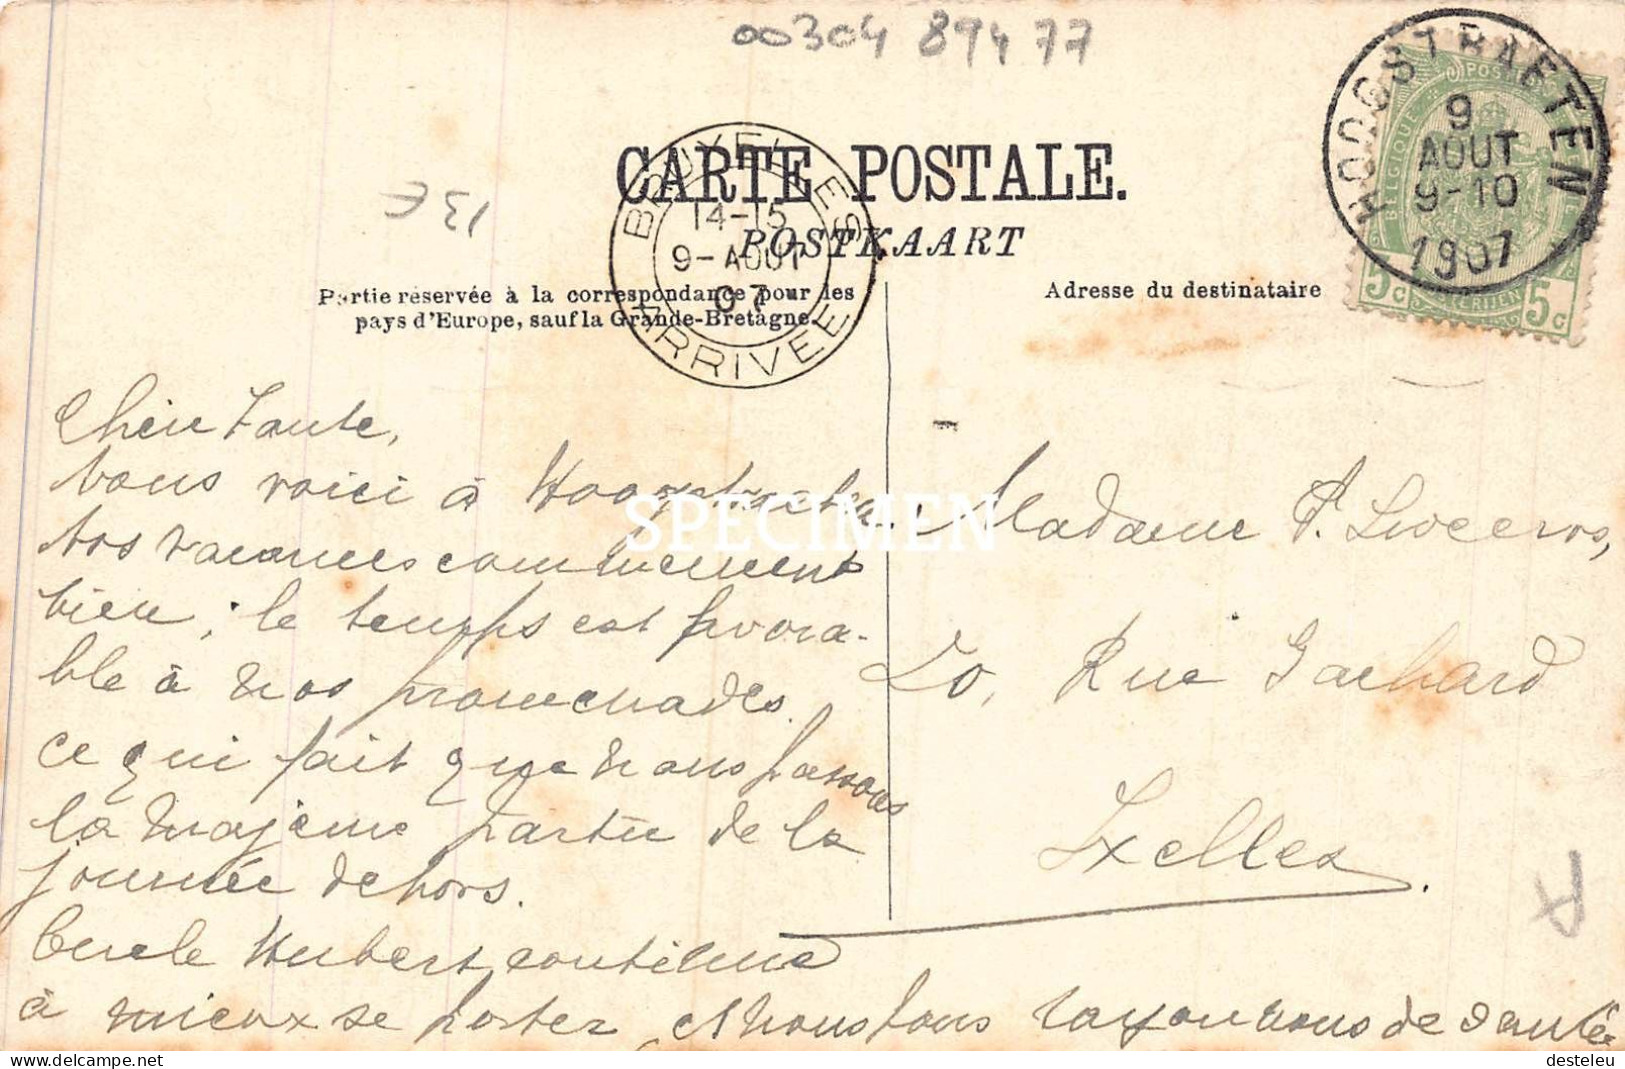 00304 89477
HOOGSTRAETEN
9
AOUT
9-10
1907
POSTES
BELGIQUE
5c 5c
CARTE POSTALE.
POSTKAART
BRUXELLES
14-15
9-AOUT
07
ARRIVEE
13 €
Partie réservée à la correspondance pour les
pays d'Europe, sauf la Grande-Bretagne.
Adresse du destinataire
Chère Tante,
Nous voici à Hoogstraeten.
Nos vacances commencent
bien ; le temps est favora-
ble à nos promenades.
ce qui fait que nous passons
la majeure partie de la
journée dehors.
Oncle Hubert continue
à mieux se porter et nous tous rayonnons de santé
Madame P.
20, Rue Gachard
Ixelles.
SPECIMEN
delcampe.net
desteleu